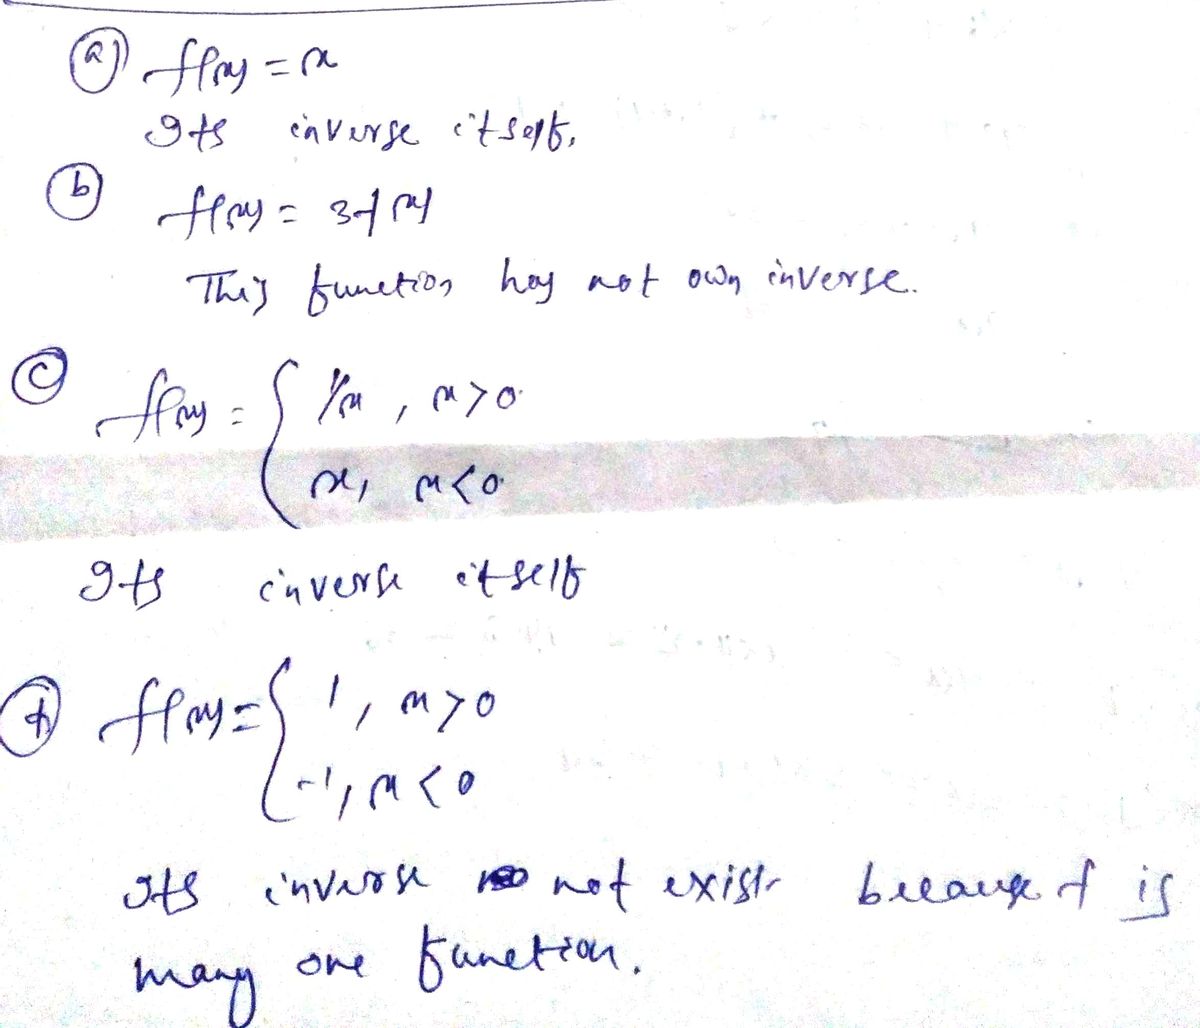 (a) f(x) = x
Its inverse itself.
(b)
f(x) = 3+|x|
This function has not own inverse.
(c)
f(x) = { 1/x , x>0
x, x<0
Its inverse itself
f(x) = { 1, x>0
-1, x<0
Its inverse not exist because f is
many one function.